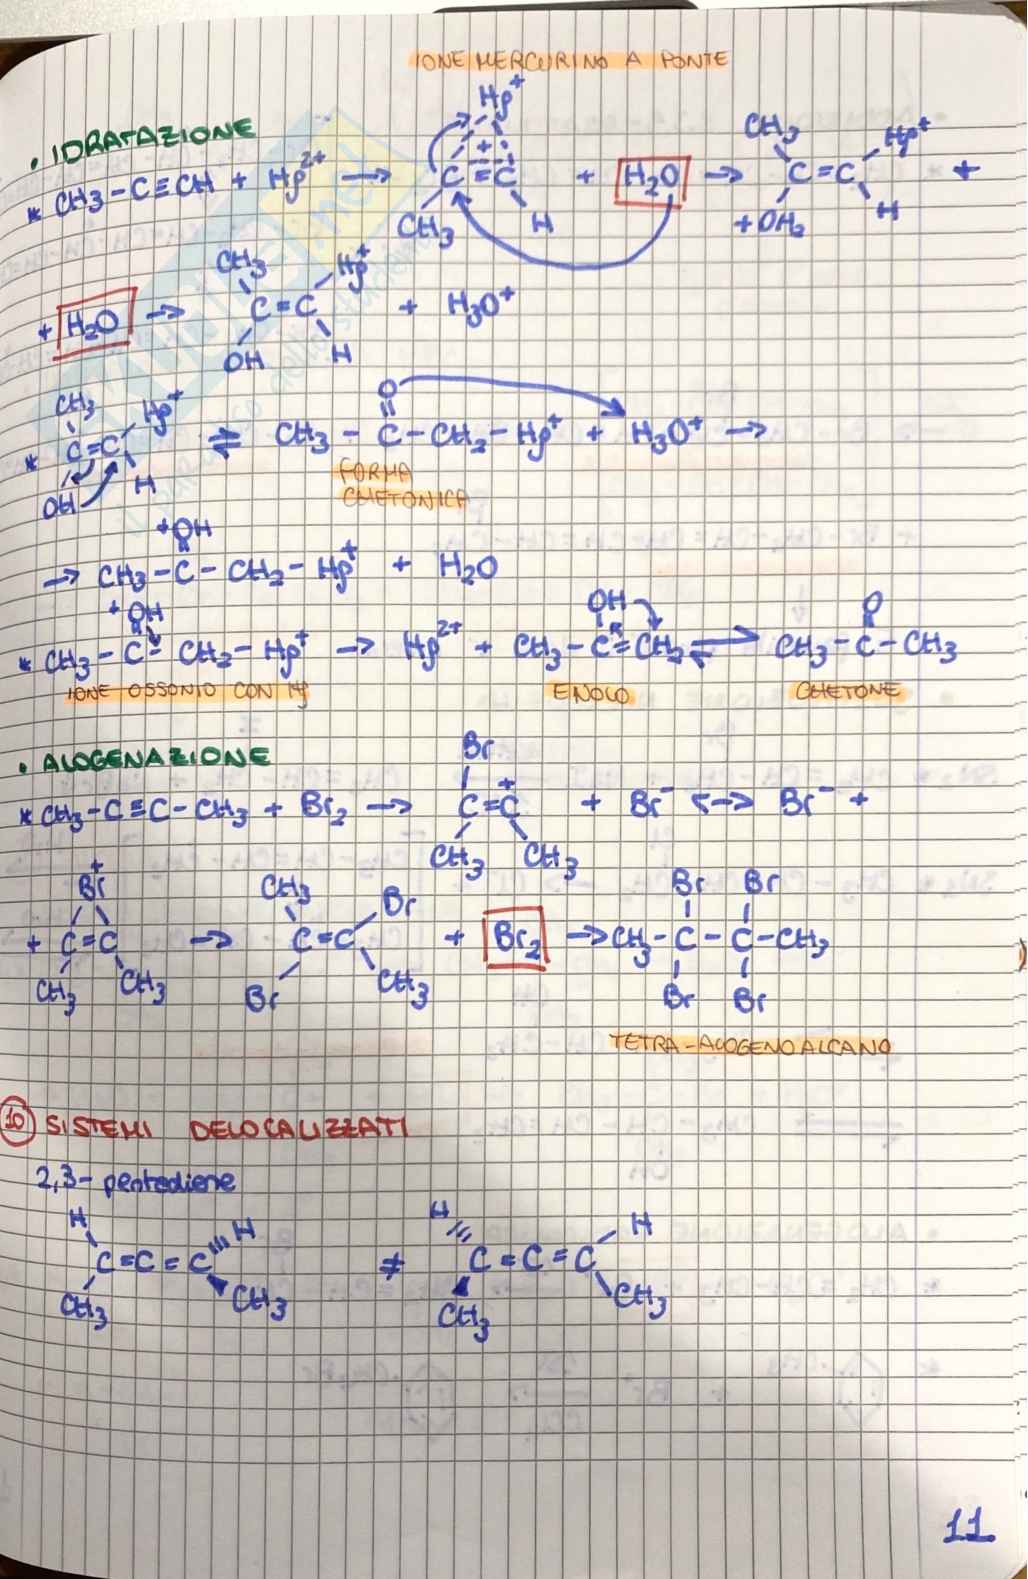 IONE MERCURINO A PONTE
. IDRATAZIONE
* CH₃-C≡CH + Hg²⁺ → Hg⁺ + C=C CH₃ H + H₂O → CH₃ Hg⁺ C=C +OH₂ H +
+ H₂O → CH₃ Hg⁺ C=C OH H + H₃O⁺
* CH₃ Hg⁺ C=C OH H ⇌ CH₃-C-CH₂-Hg⁺ O + H₃O⁺ →
FORMA
CHETONICA
+OH
→ CH₃-C-CH₂-Hg⁺ + H₂O
+OH OH O
* CH₃-C-CH₂-Hg⁺ → Hg²⁺ + CH₃-C=CH₂ ⇌ CH₃-C-CH₃
IONE OSSONIO CON Hg ENOLO CHETONE
. ALOGENAZIONE
* CH₃-C≡C-CH₃ + Br₂ → Br C=C⁺ CH₃ CH₃ + Br⁻ ↔ Br⁻ +
+ Br⁺ C=C CH₃ CH₃ → CH₃ Br C=C Br CH₃ + Br₂ → Br Br CH₃-C-C-CH₃ Br Br
TETRA-ALOGENOALCANO
10 SISTEMI DELOCALIZZATI
2,3-pentadiene
H C=C=C H CH₃ CH₃ ≠ H C=C=C H CH₃ CH₃
11